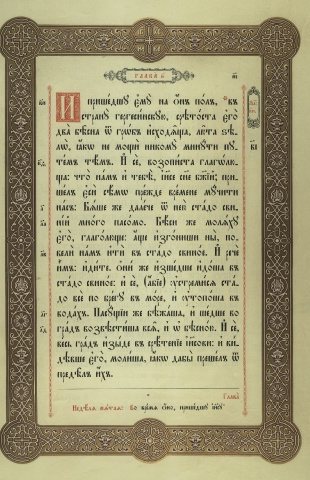 ГЛАВА И҃
И пришедшꙋ є҆мꙋ̀ на ѡ҆́нъ по́лъ, въ
странꙋ̀ гергеси́нскꙋю, срѣто́ста є҆го̀
два̀ бѣ̑сна ѿ грѡ́бъ и҆сходѧ̑ща, лю̑та ѕѣ-
лѡ̀, ꙗ҆́кѡ не мощѝ никомꙋ̀ минꙋ́ти пꙋ-
те́мъ тѣ́мъ. И҆ сѐ, возопи́ста глаго́лю-
ща: что̀ на́ма и҆ тебѣ̀, і҆и҃се сн҃е бж҃їй; при-
ше́лъ є҆сѝ сѣ́мѡ пре́жде вре́мене мꙋ́чити
на́съ. Бѧ́ше же дале́че ѿ нею̀ ста́до сви-
ні́й мно́го пасо́мо. Бѣ́си же молѧ́хꙋ
є҆го̀, глаго́люще: а҆́ще и҆зго́ниши ны̀, по-
велѝ на́мъ и҆тѝ въ ста́до свино́е. И҆ речѐ
и҆̀мъ: и҆ди́те. Ѻ҆ни́ же и҆зше́дше и҆до́ша въ
ста́до свино́е: и҆ сѐ, (а҆́бїе) ᲂу҆стреми́сѧ ста́-
до всѐ по бре́гꙋ въ мо́ре, и҆ ᲂу҆топо́ша въ
вода́хъ. Пасꙋ́щїи же бѣжа́ша, и҆ ше́дше во
гра́дъ возвѣсти́ша всѧ̑, и҆ ѡ҆ бѣснꙋ́ю. И҆ сѐ,
ве́сь гра́дъ и҆зы́де въ срѣ́тенїе і҆и҃сови: и҆ ви́-
дѣвше є҆го̀, моли́ша, ꙗ҆́кѡ дабы̀ преше́лъ ѿ
предѣ̑лъ и҆́хъ.
Глава̀
Недѣ́лѧ пѧ́таѧ: Во вре́мѧ ѻ҆́но, прише́дшꙋ і҆и҃сꙋ